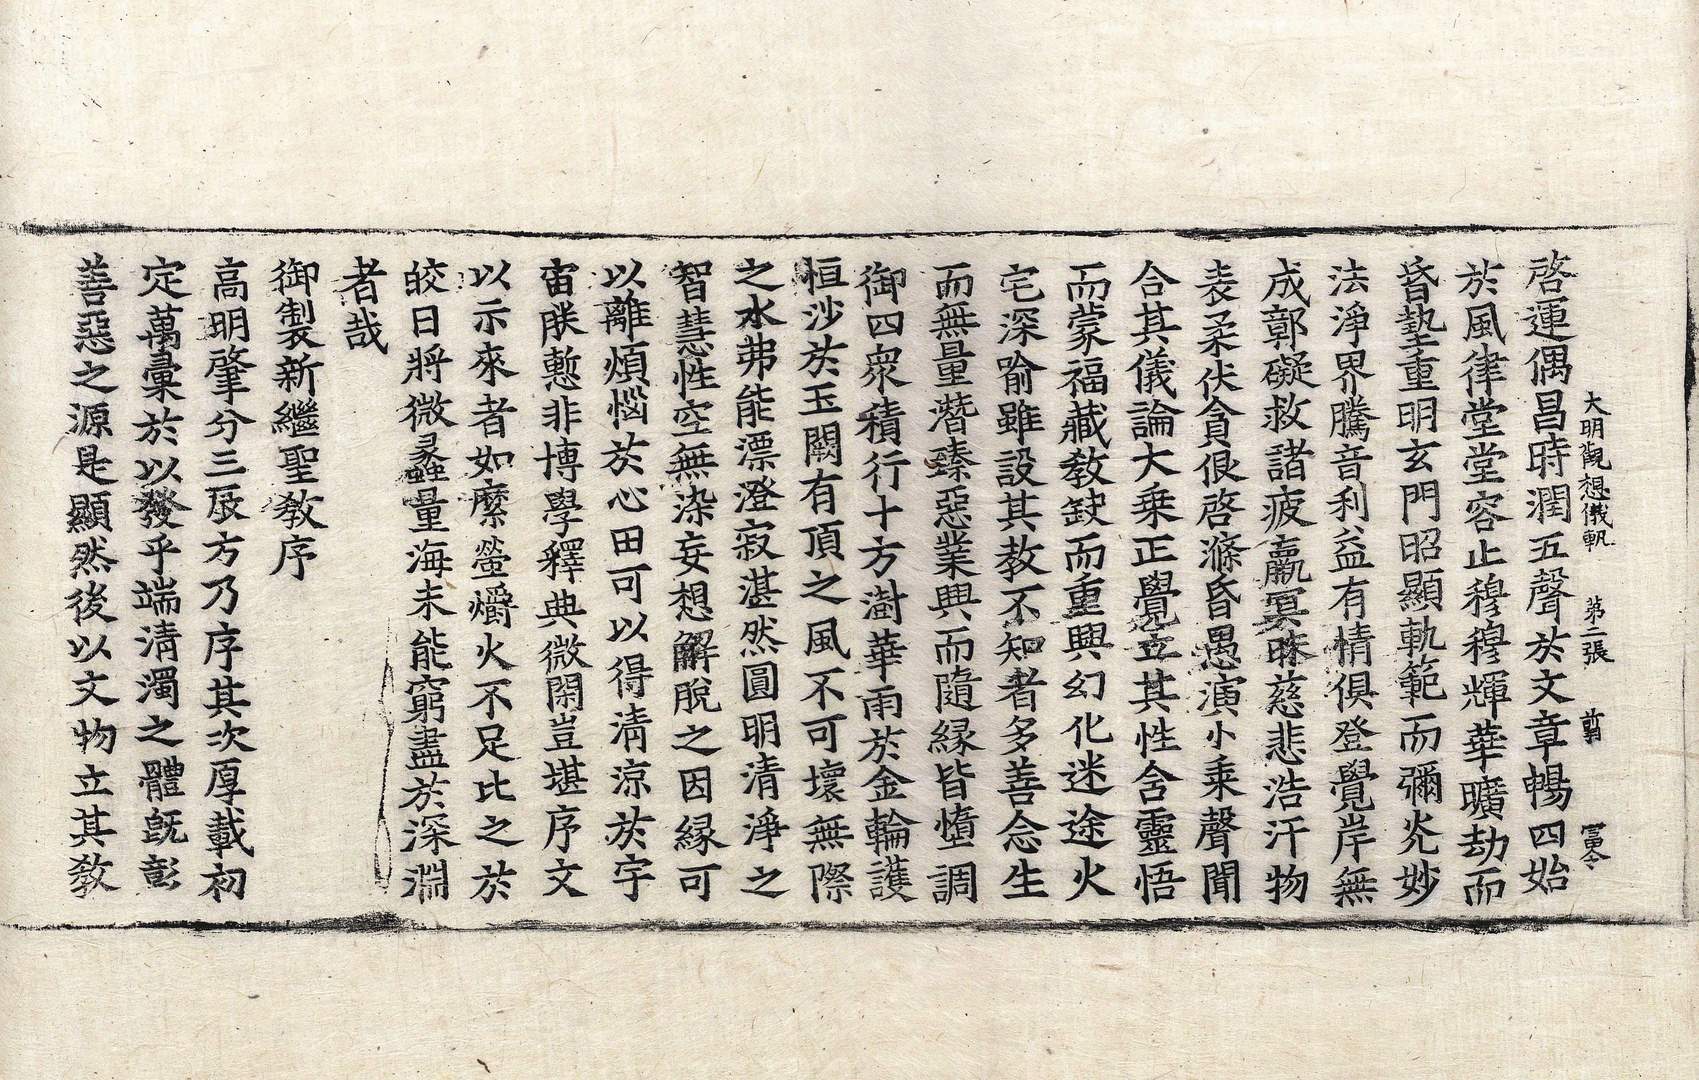 大明觀想儀軌 第二張 薺 富令
啓運偶昌時潤五聲於文章暢四始
於風律堂堂容止穆穆輝華曠劫而
昏墊重明玄門昭顯軌範而彌光妙
法淨界騰音利益有情俱登覺岸無
成郭礙救諸疲羸冥昧慈悲浩汗物
表柔伏貪佷啓滌昏愚演小乘聲聞
合其儀論大乘正覺立其性含靈悟
而蒙福藏教缺而重興幻化迷途火
宅深喻雖設其教不知者多善念生
而無量潛臻惡業興而隨緣皆墮調
御四衆積行十方澍華雨於金輪護
恒沙於玉闕有頂之風不可壞無際
之水弗能漂澄寂湛然圓明清淨之
智慧性空無染妄想解脫之因緣可
以離煩惱於心田可以得淸涼於宇
宙朕慙非博學釋典微閑豈堪序文
以示來者如縻螢爝火不足比之於
皎日將微蠡量海未能窮盡於深淵
者哉
御製新繼聖教序
高明肇分三辰方乃序其次厚載初
定萬彙於以發乎端淸濁之體旣彰
善惡之源是顯然後以文物立其教